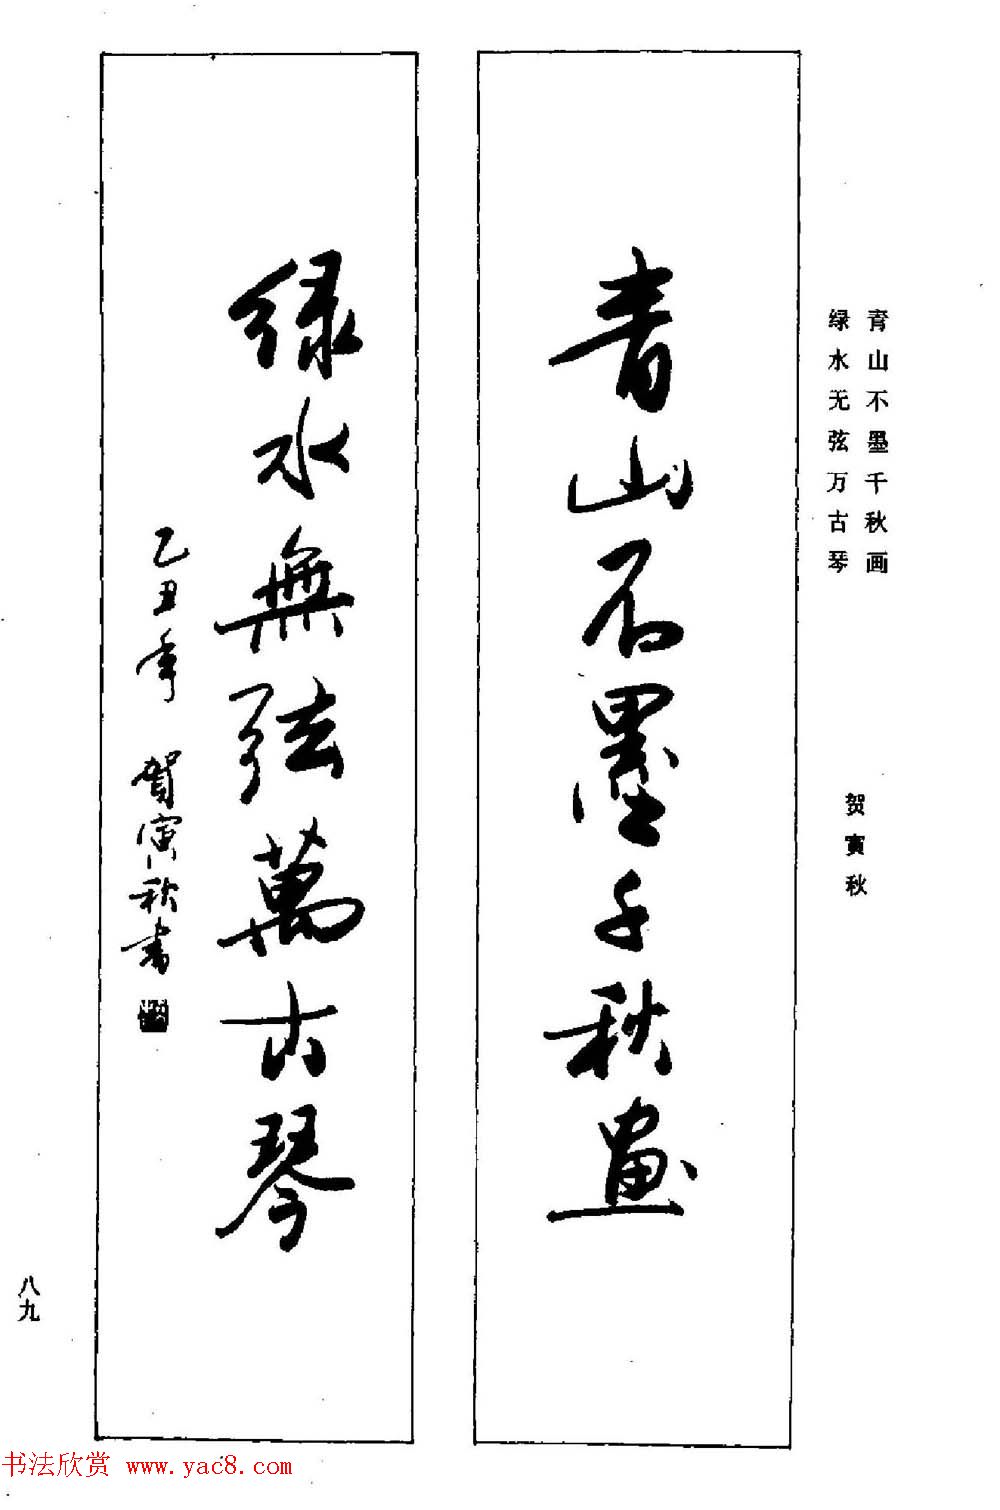 青山不墨千秋画
绿水无弦万古琴
贺寅秋
青山不墨千秋畫
緑水無弦萬古琴
乙丑年 賀寅秋書
八九
书法欣赏 www.yac8.com